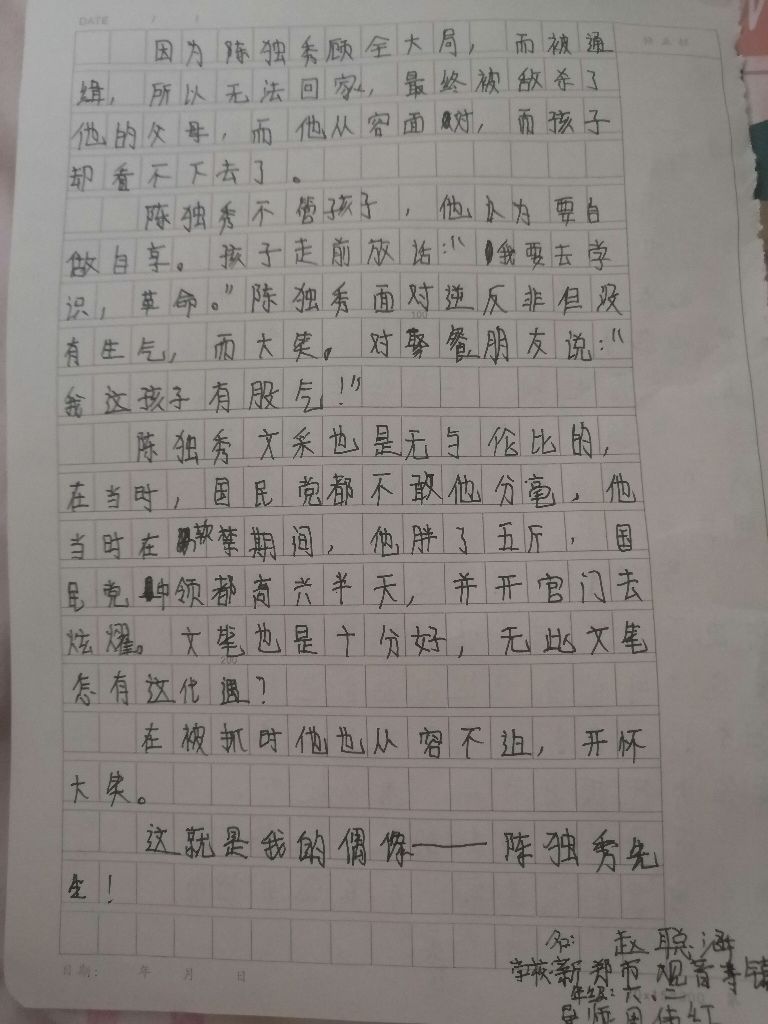 DATE / /
因为陈独秀顾全大局，而被通
缉，所以无法回家，最终被敌杀了
他的父母，而他从容面对，而孩子
却看不下去了。
陈独秀不管孩子，他认为要自
做自享。孩子走前放话："我要去学
识，革命。"陈独秀面对逆反非但没
有生气，而大笑。对聚餐朋友说："
100
我这孩子有股气！"
陈独秀文采也是无与伦比的，
在当时，国民党都不敢他分毫，他
当时在软禁期间，他胖了五斤，国
民党帅领都高兴半天，并开官门去
炫耀。文笔也是十分好，无此文笔
200
怎有这代遇？
在被抓时他也从容不迫，开怀
大笑。
这就是我的偶像——陈独秀先
生！
名：赵聪涵
学校：新郑市观音寺镇
日期： 年 月 日
年级：六、二